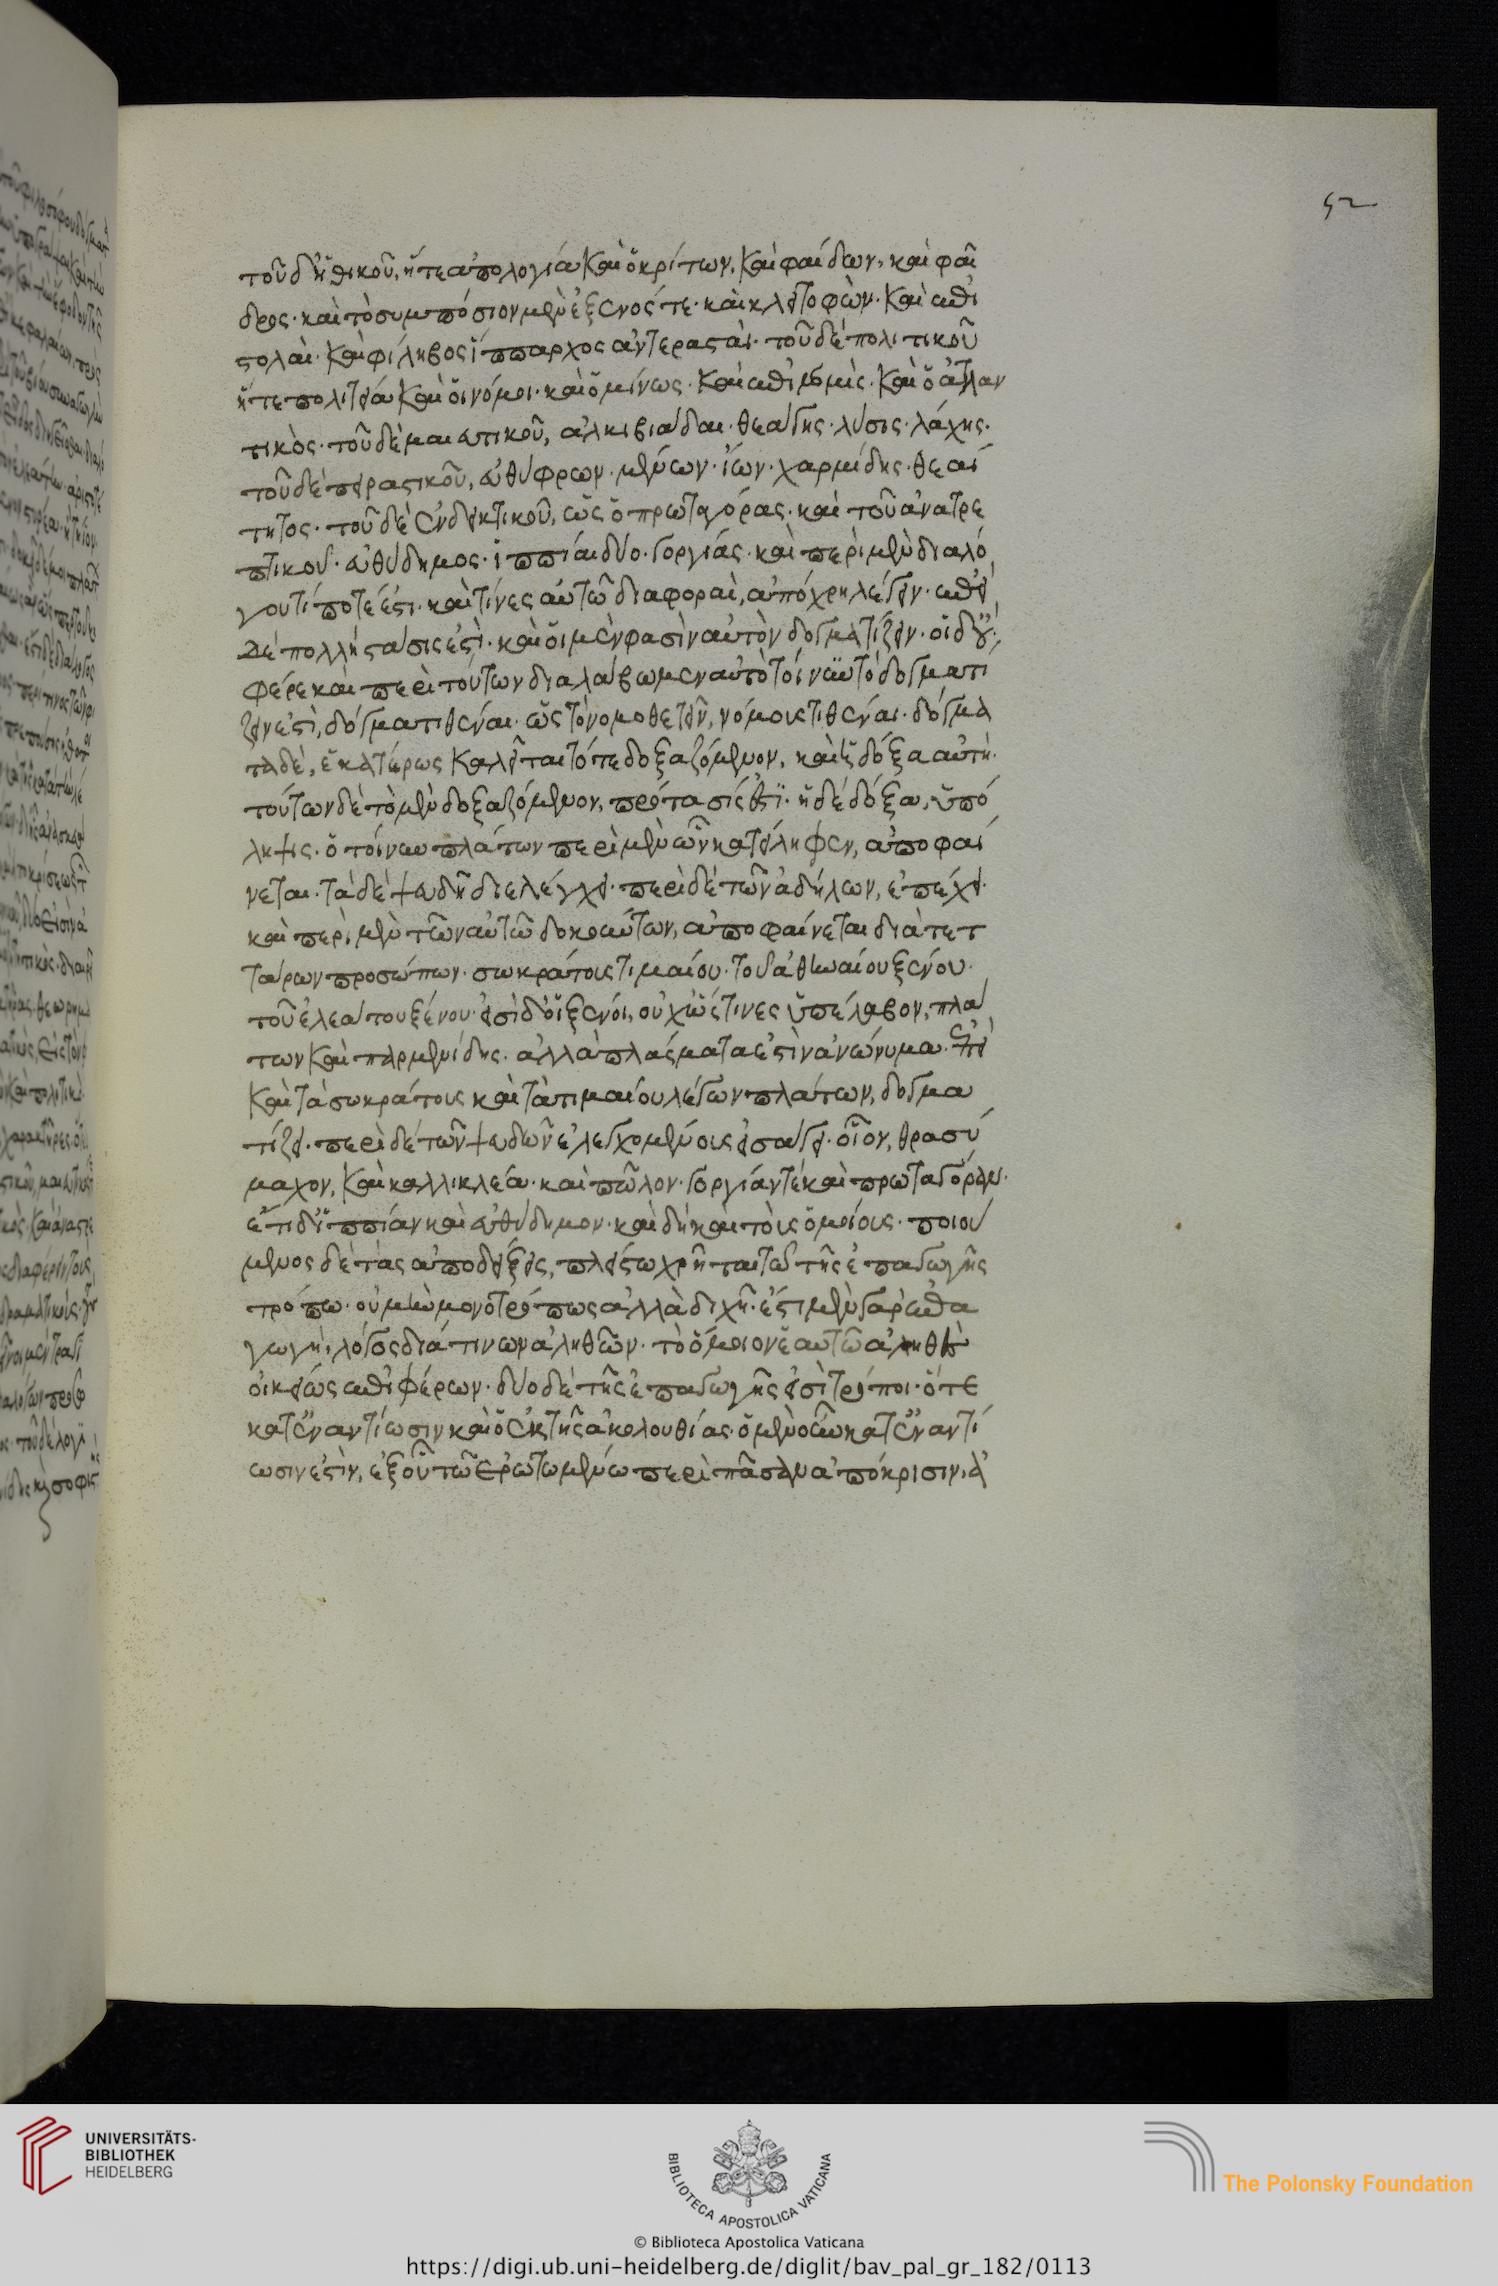 52
τοῦ δ' ἠθικοῦ, ἥ τε ἀπολογία καὶ ὁ κρίτων, καὶ φαίδων, καὶ φαῖ
δρος· καὶ τὸ συμπόσιον μενέξενός τε· καὶ κλειτοφῶν· καὶ ἐπι
στολαὶ· καὶ φίληβος ἵππαρχος ἀντερασταὶ· τοῦ δὲ πολιτικοῦ
ἥ τε πολιτεία καὶ οἱ νόμοι· καὶ ὁ μίνως· καὶ ἐπινομὶς· καὶ ὁ ἀτλαν
τικὸς· τοῦ δὲ μαιευτικοῦ, ἀλκιβιάδαι· θεάγης· λύσις· λάχης·
τοῦ δὲ πειραστικοῦ, εὐθύφρων· μένων· ἴων· χαρμίδης· θεαί
τητος· τοῦ δὲ ἐνδεικτικοῦ, ὡς ὁ πρωταγόρας· καὶ τοῦ ἀνατρε
πτικοῦ· εὐθύδημος· ἱππίαι δύο· γοργίας· καὶ περὶ μὲν διαλό
γου τί ποτέ ἐστι· καὶ τίνες αὐτοῦ διαφοραὶ, ἀπόχρη λέγειν· ἐπεὶ
δὲ πολλὴ στάσις ἐστὶ· καὶ οἱ μὲν φασὶν αὐτὸν δογματίζειν· οἱ δ' οὔ·
φέρε καὶ περὶ τούτων διαλάβωμεν αὐτὸ τοίνυν τὸ δογματί
ζειν ἐστὶ, δόγματα τιθέναι· ὡς τὸ νομοθετεῖν, νόμους τιθέναι· δόγμα
τα δὲ, ἑκατέρως καλεῖται τό τε δοξαζόμενον, καὶ ἡ δόξα αὐτή·
τούτων δὲ τὸ μὲν δοξαζόμενον, πρότασίς ἐστι· ἡ δὲ δόξα, ὑπό
ληψις· ὁ τοίνυν πλάτων περὶ μὲν ὧν κατείληφεν, ἀποφαί
νεται· τὰ δὲ ψευδῆ διελέγχει· περὶ δὲ τῶν ἀδήλων, ἐπέχει·
καὶ περὶ μὲν τῶν αὐτῶ δοκούντων, ἀποφαίνεται διὰ τετ
τάρων προσώπων· σωκράτους τιμαίου· τοῦ ἀθηναίου ξένου·
τοῦ ἐλεάτου ξένου· εἰσὶ δ' οἱ ξένοι, οὐχ ὥς τινες ὑπέλαβον, πλά
των καὶ παρμενίδης· ἀλλὰ πλάσματα ἐστὶν ἀνώνυμα· ἐπεὶ
καὶ τὰ σωκράτους καὶ τὰ τιμαίου λέγων πλάτων, δογμα
τίζει· περὶ δὲ τῶν ψευδῶν ἐλεγχομένους εἰσάγει· οἷον, θρασύ
μαχον, καὶ καλλικλέα· καὶ πῶλον· γοργίαν τὲ καὶ πρωταγόραν·
ἔτι δ' ἱππίαν καὶ εὐθύδημον· καὶ δὴ καὶ τοὺς ὁμοίους· ποιού
μενος δὲ τὰς ἀποδείξεις, πλείστω χρῆται τῶ τῆς ἐπαγωγῆς
τρόπω· οὐ μὴν μονοτρόπως ἀλλὰ διχῆ· ἔστι μὲν γὰρ ἐπα
γωγὴ, λόγος διά τινων ἀληθῶν· τὸ ὅμοιον ἑαυτῶ ἀληθὲς
οἰκείως ἐπιφέρων· δύο δὲ τῆς ἐπαγωγῆς εἰσὶ τρόποι· ὅ τε
κατ' ἐναντίωσιν καὶ ὁ ἐκ τῆς ἀκολουθίας· ὁ μὲν οὖν κατ' ἐναντί
ωσιν ἐστὶν, ἐξ οὗ τῶ ἐρωτωμένω περὶ πᾶσαν ἀπόκρισιν, ἀ
UNIVERSITÄTS-
BIBLIOTHEK
HEIDELBERG
BIBLIOTECA APOSTOLICA VATICANA
The Polonsky Foundation
© Biblioteca Apostolica Vaticana
https://digi.ub.uni-heidelberg.de/diglit/bav_pal_gr_182/0113